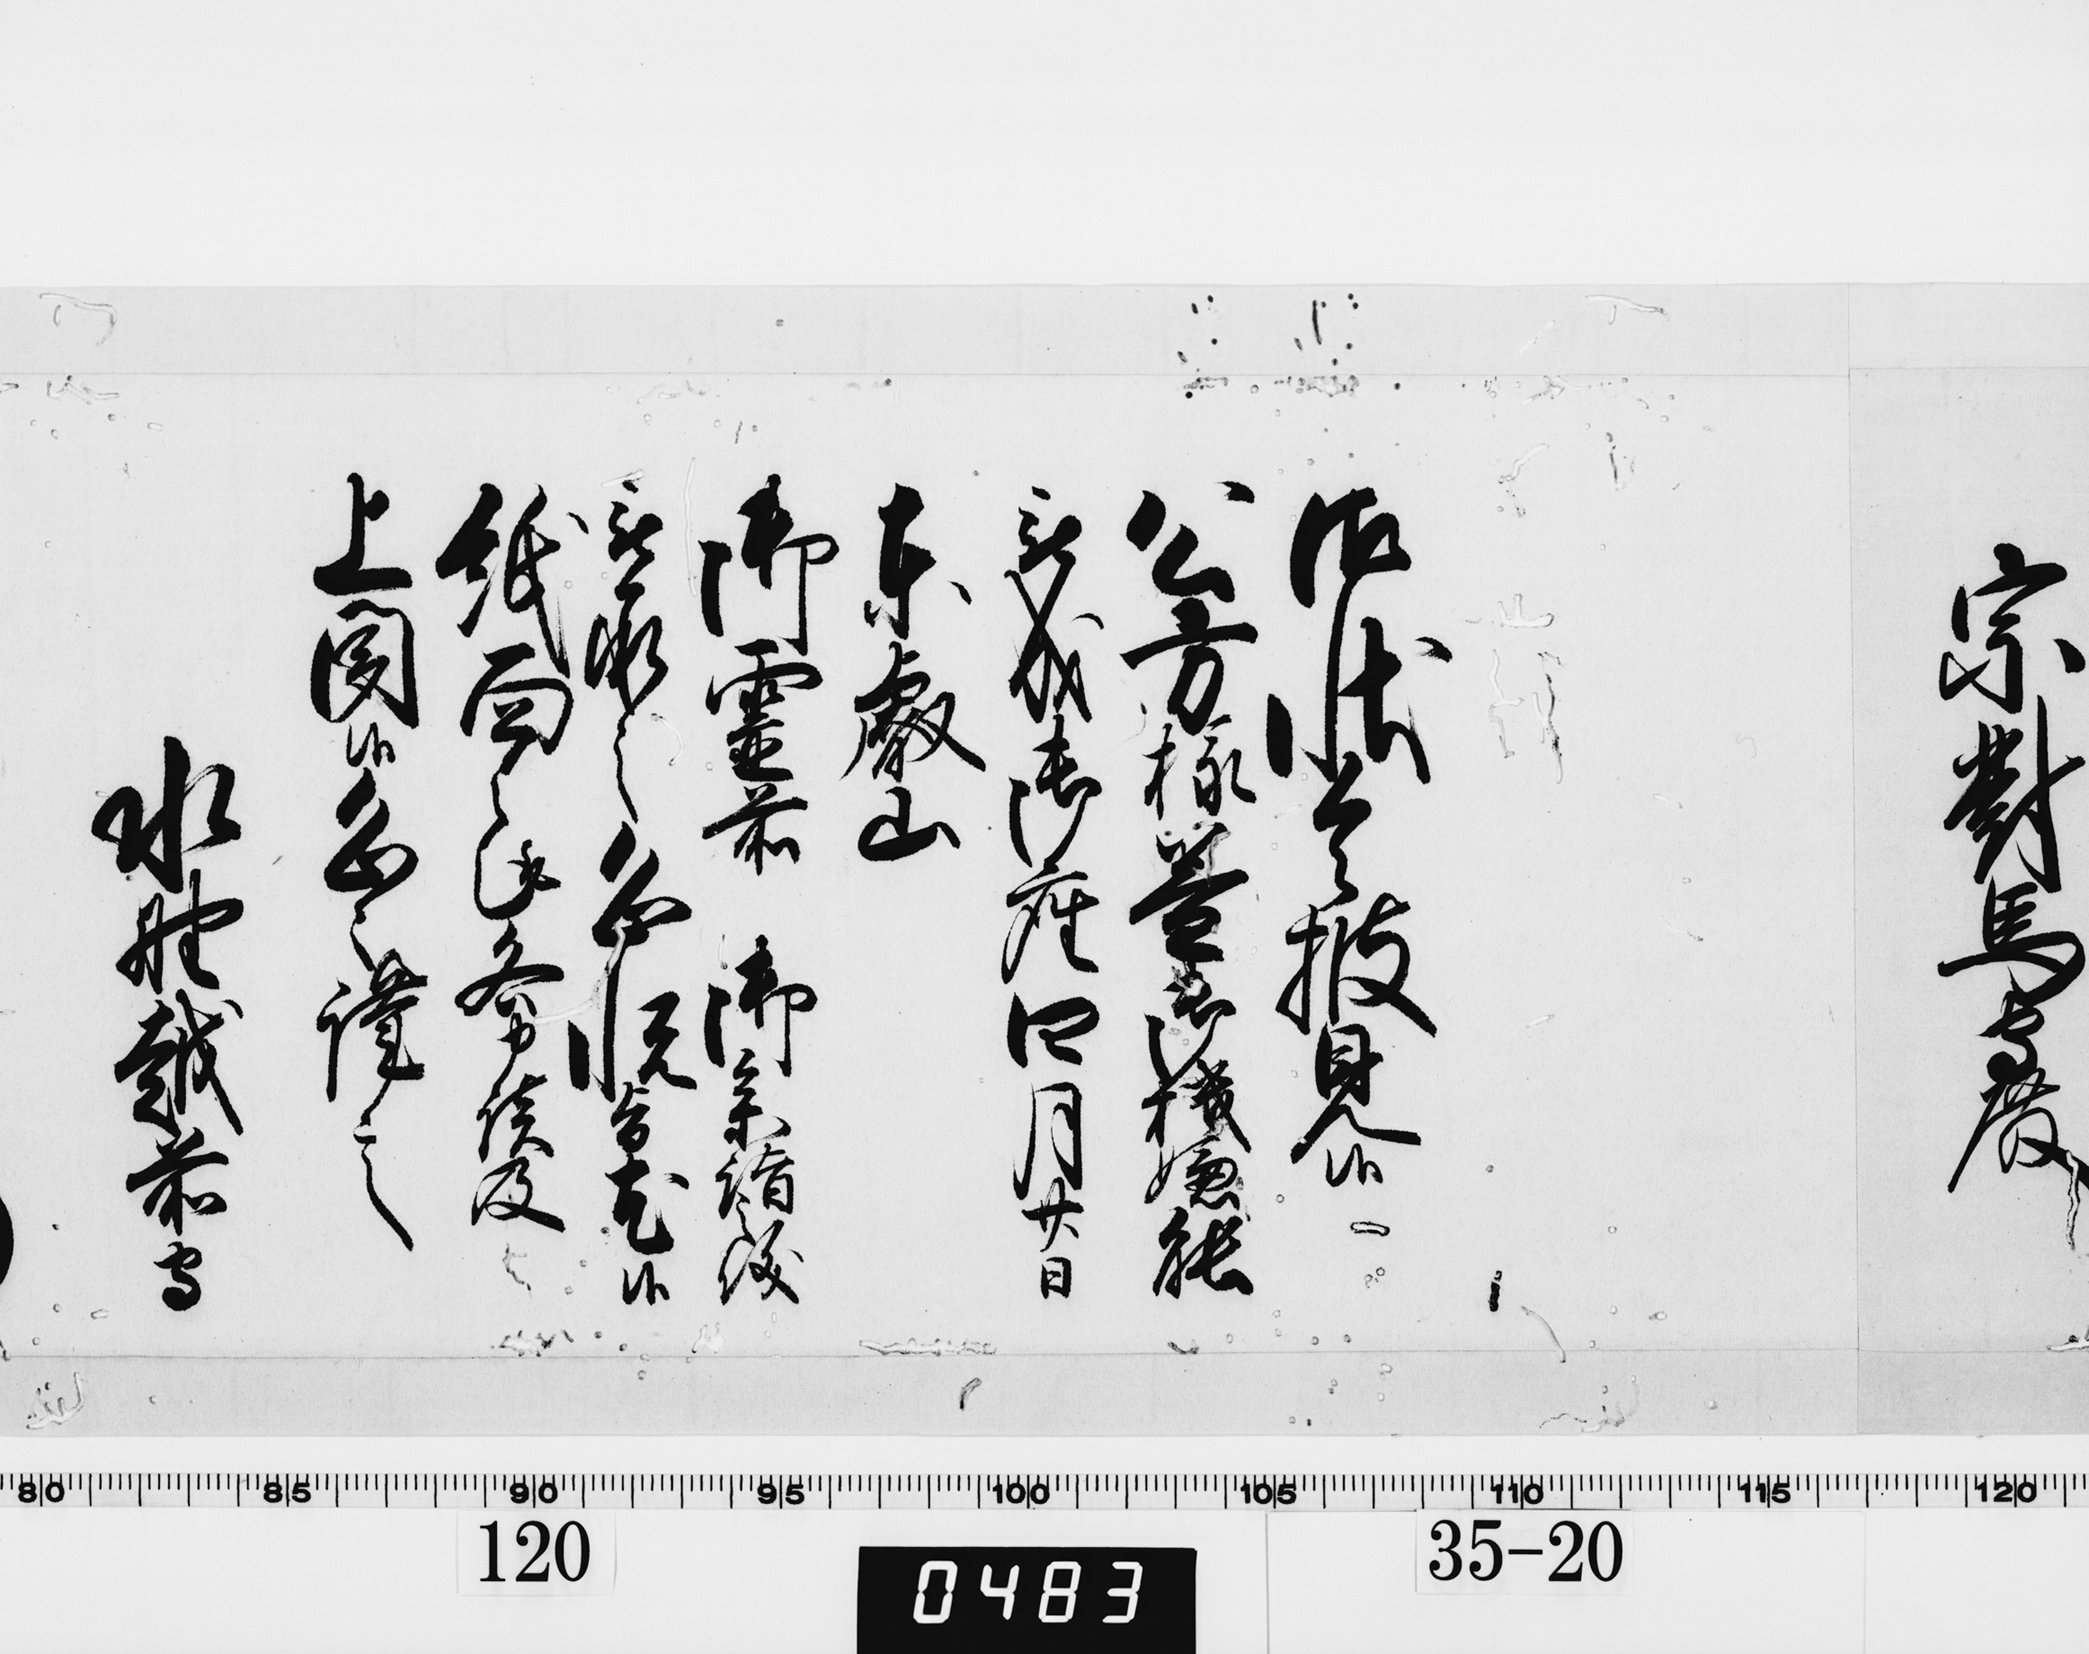 宗對馬守殿
御状令披見候
公方様益御機嫌能
被成御座四月廿日
東叡山
御霊前 御参詣段
被承之恐悦旨尤候
紙面之趣各申談及
上聞候恐々謹言
水野越前守
80 85 90 95 100 105 110 115 120
120 35-20
0483